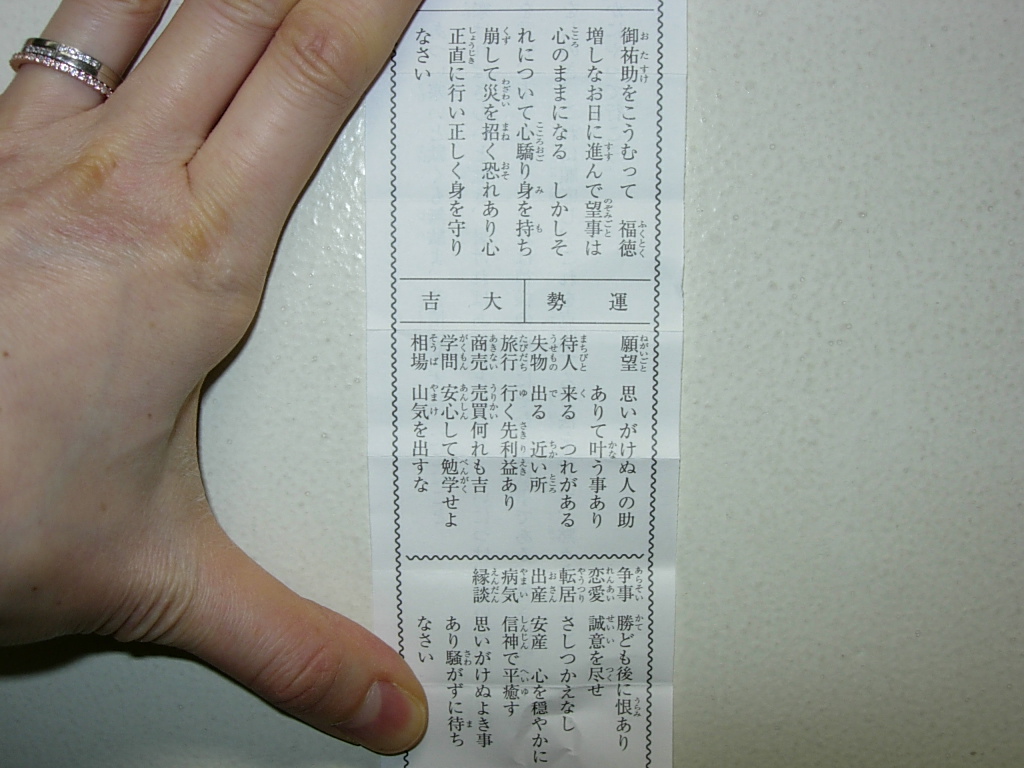 御祐助をこうむって　福徳
増しなお日に進んで望事は
心のままになる　しかしそ
れについて心驕り身を持ち
崩して災を招く恐れあり心
正直に行い正しく身を守り
なさい
運勢　大吉
願望　思いがけぬ人の助
ありて叶う事あり
待人　来る　つれがある
失物　出る　近い所
旅行　行く先利益あり
商売　売買何れも吉
学問　安心して勉学せよ
相場　山気を出すな
争事　勝ども後に恨あり
恋愛　誠意を尽せ
転居　さしつかえなし
出産　安産　心を穏やかに
病気　信神で平癒す
縁談　思いがけぬよき事
あり騒がずに待ち
なさい